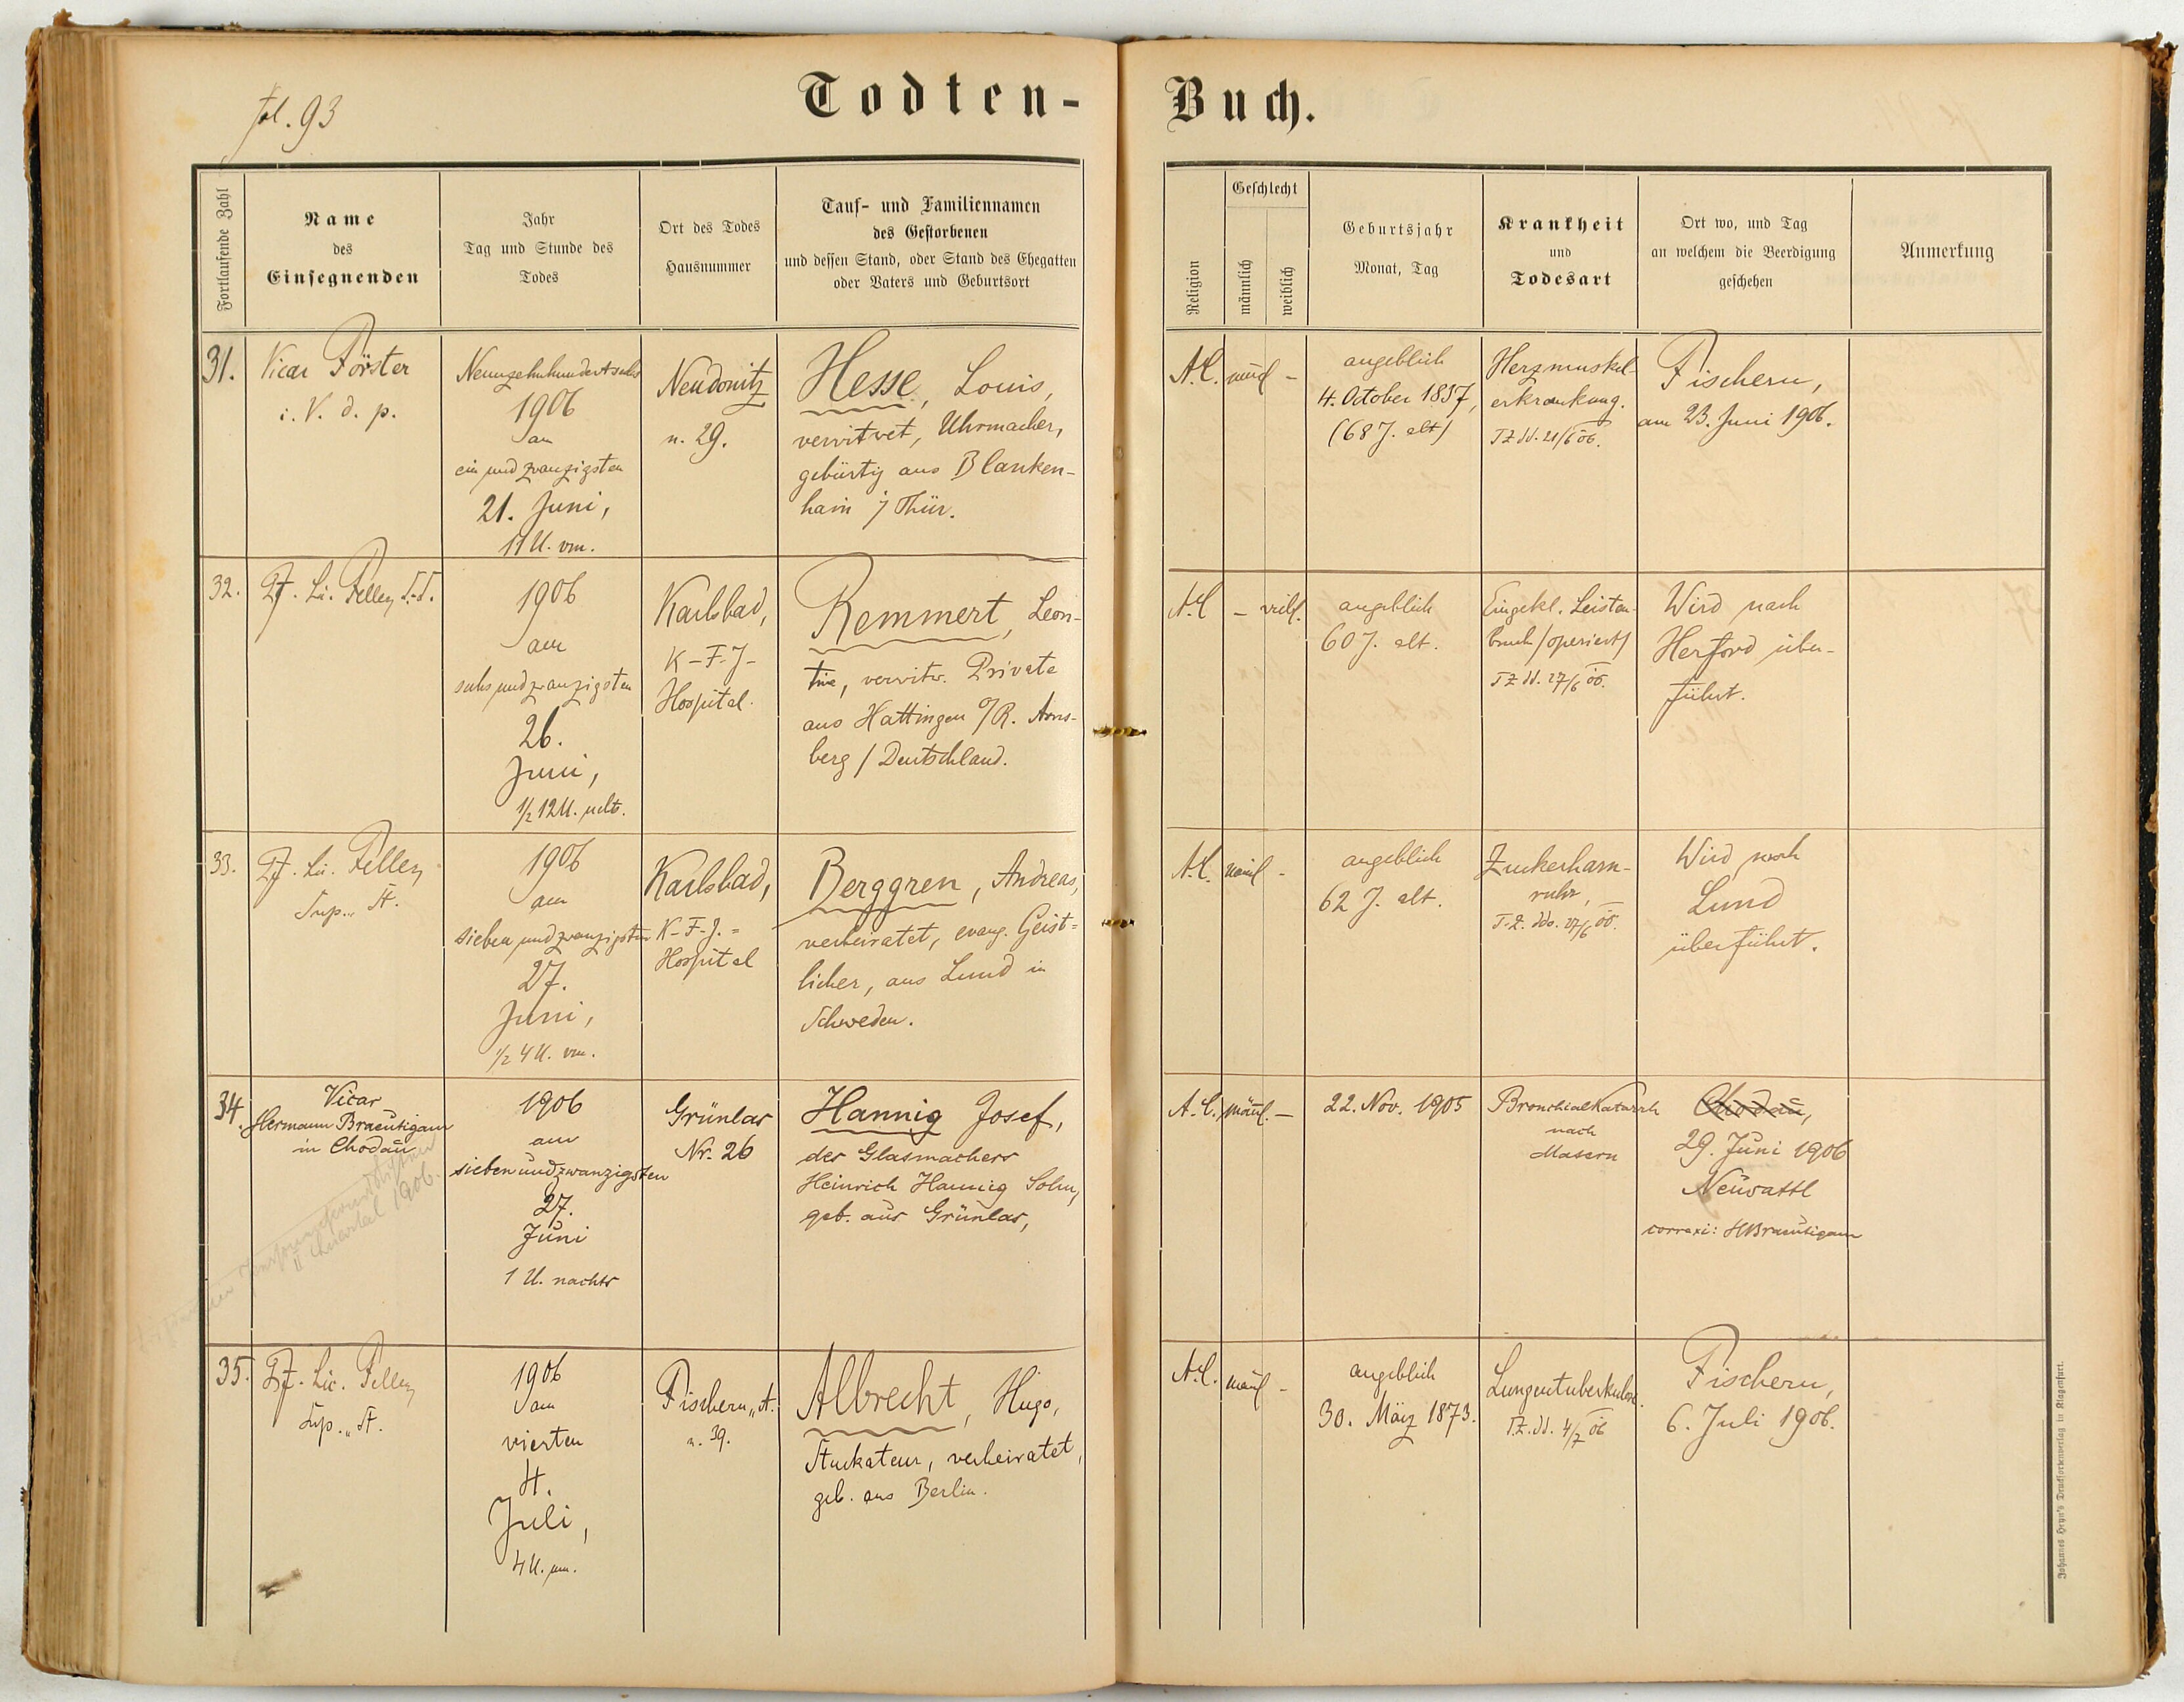 fol. 93
Todten-Buch.
Fortlaufende Zahl
Name
des
Einsegnenden
Jahr
Tag und Stunde des
Todes
Ort des Todes
Hausnummer
Tauf- und Familiennamen
des Gestorbenen
und dessen Stand, oder Stand des Ehegatten
oder Vaters und Geburtsort
Religion
Geschlecht
männlich
weiblich
Geburtsjahr
Monat, Tag
Krankheit
und
Todesart
Ort wo, und Tag
an welchem die Beerdigung
geschehen
Anmerkung
31.
Vicar Förster
i. V. d. p.
Neunzehnhundertsechs
1906
am
ein und zwanzigsten
21. Juni,
11 U. vm.
Neudonitz
n. 29.
Hesse, Louis,
verwitwet, Uhrmacher,
gebürtig aus Blanken-
hain i/ Thür.
A.C.
männl -
angeblich
4. October 1837,
(68 J. alt)
Herzmuskel-
erkrankung.
TZ dd. 21/6 06.
Fischern,
am 23. Juni 1906.
32.
Pf. Lic. Feller
1906
am
sechsundzwanzigsten
26.
Juni,
1/2 12 U. nchts.
Karlsbad,
K-F-J-
Hospital.
Remmert, Leon-
tine, verwitw. Private
aus Hattingen /R. Arns-
berg / Deutschland.
A.C
- weibl.
angeblich
60 J. alt.
Eingekl. Leisten-
bruch /operiert/
TZ dd. 27/6 06.
Wird nach
Herford über-
führt.
33.
Pf. Lic. Feller
Sup. St.
1906
am
sieben und zwanzigsten
27.
Juni,
1/2 4 U. vm.
Karlsbad,
K-F-J.=
Hospital
Berggren, Andreas,
verheiratet, evang. Geist=
licher, aus Lund in
Schweden.
A.C.
männl -
angeblich
62 J. alt.
Zuckerharn-
ruhr,
T.Z. ddo. 27/6 06.
Wird nach
Lund
überführt.
34.
Vicar
Hermann Braeutigam
in Chodau
II Quartal 1906.
1906
am
siebenundzwanzigsten
27.
Juni
1 U. nachts
Grünlas
Nr. 26
Hannig Josef,
des Glasmachers
Heinrich Hannig Sohn,
geb. aus Grünlas,
A.C.
männl. -
22. Nov. 1905
Bronchialkatarrh
nach
Masern
Chodau,
29. Juni 1906
Neusattl
correxi: HBraeutigam
35.
Pf. Lic. Feller
Sup. St.
1906
am
vierten
4.
Juli,
4 U. nm.
Fischern, A.
n. 39.
Albrecht, Hugo,
Stuckateur, verheiratet,
geb. aus Berlin.
A.C.
männl -
angeblich
30. März 1873.
Lungentuberkulose.
T.Z. dd. 4/7 06
Fischern,
6. Juli 1906.
Johannes Heyn's Drucksortenverlag in Klagenfurt.